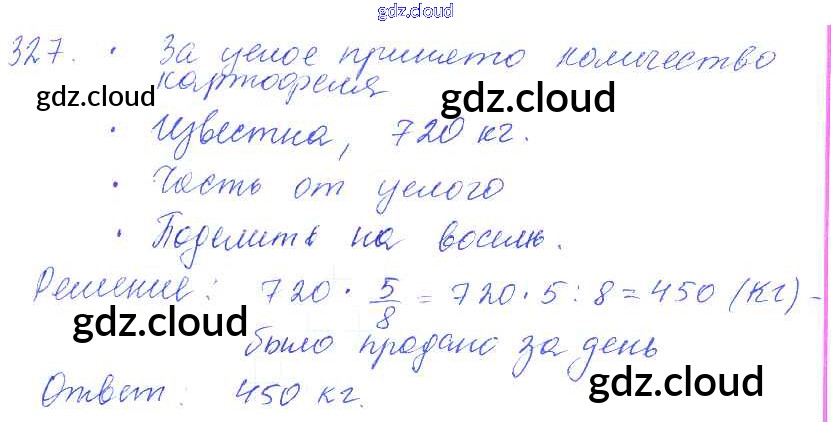 gdz.cloud
327. • За целое принято количество
картофеля
gdz.cloud gdz.cloud
• Известна, 720 кг.
• Часть от целого
• Поделить на восемь.
Решение: 720 · 5/8 = 720 · 5 : 8 = 450 (кг) -
gdz.cloud
было продано за день
gdz.cloud
Ответ: 450 кг.